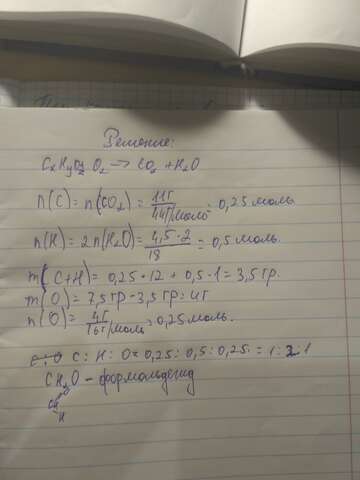 Решение:
CxHyOz O₂ → CO₂ + H₂O
n(C) = n(CO₂) = 11г / 44г/моль = 0,25 моль
n(H) = 2n(H₂O) = 4,5·2 / 18 = 0,5 моль.
m(C+H) = 0,25·12 + 0,5·1 = 3,5 гр.
m(O) = 7,5гр - 3,5 гр = 4г
n(O) = 4г / 16г/моль = 0,25 моль.
C : H : O = 0,25 : 0,5 : 0,25 = 1 : 2 : 1
CH₂O - формальдегид